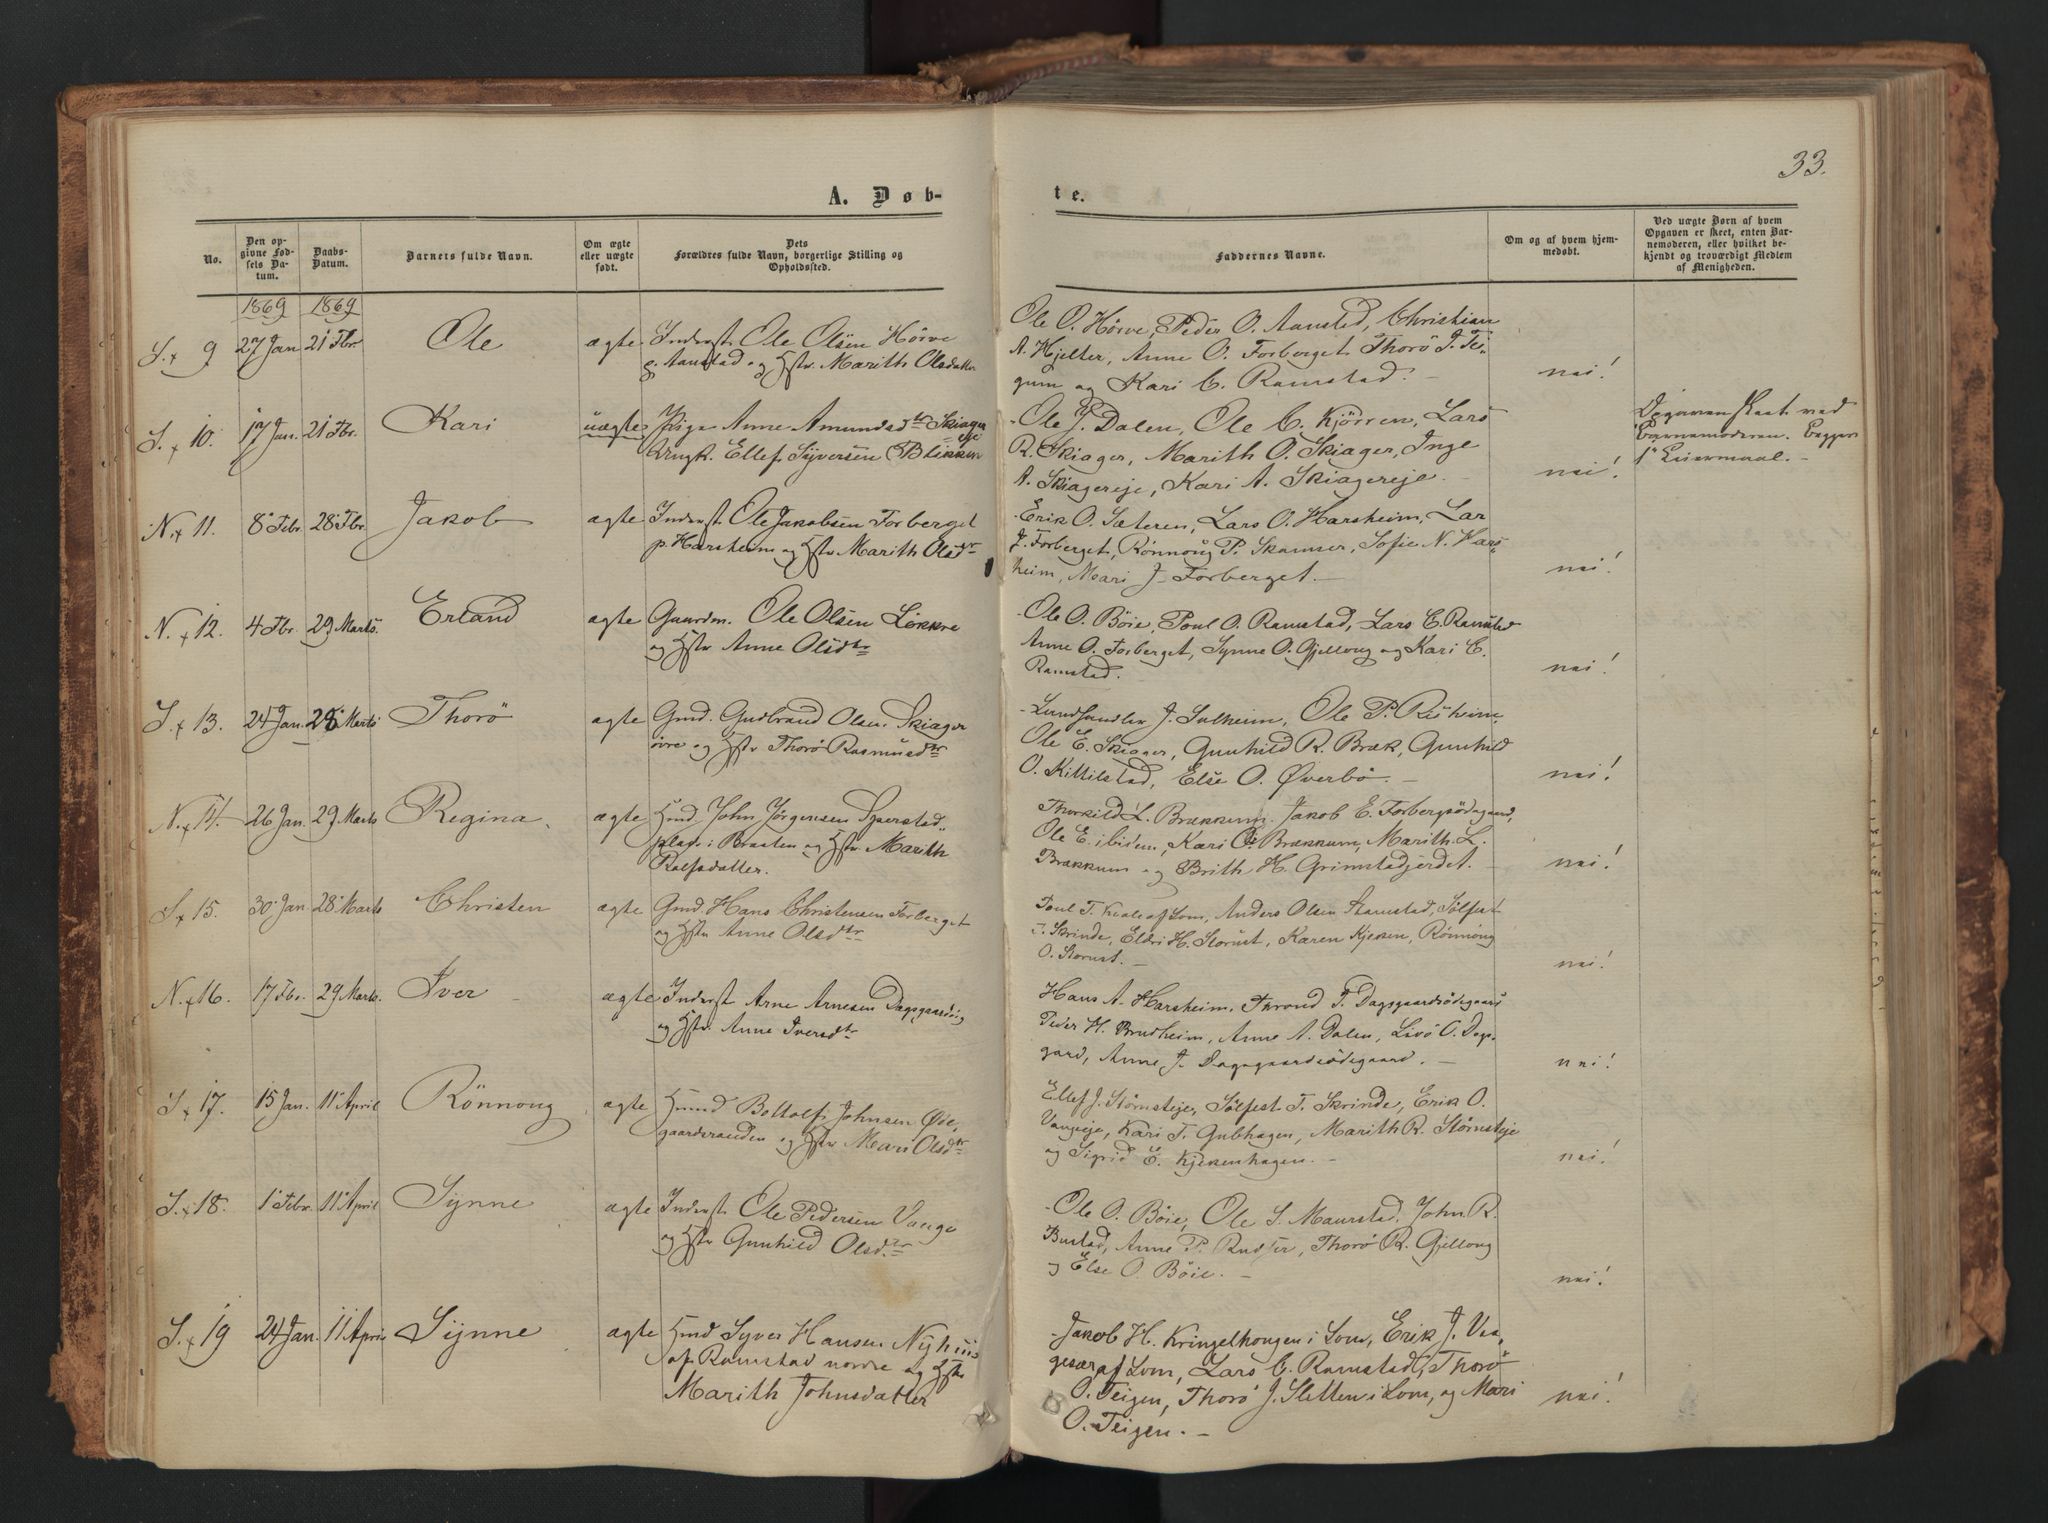 33.
A. Døb-
te.
No.
Den op-
givne Fød-
sels Da-
tum.
Daabs-
Datum.
Barnets fulde Navn.
Om ægte
eller uægte
født.
Dets
Forældres fulde Navn, borgerlige Stilling og
Opholdssted.
Faddernes Navne.
Om og af hvem hjem-
medøbt.
Ved uægte Børn af hvem
Opgaven er skeet, enten Bar-
nemoderen, eller hvilket be-
kjendt og troværdigt Medlem
af Menigheden.
1869 1869
S. 9 27 Jan 21 Fbr. Ole ægte Inderst Ole Olsen Hörve
p. Aanstad og Hstr. Marith Olsdatter
Ole O. Hörve, Peder O. Aanstad, Christian
A. Hjelter, Anne O. Forberget Thorö J. Tei-
gum og Kari C. Ramstad. nei!
S. 10. 17 Jan. 21 Fbr. Kari uægte Pige Anne Amundsdtr Skiager
eje
Ungk. Ellef Syversen Blikken
Ole J. Dalen, Ole C. Kjörren, Lars
R. Skiager, Marith O. Skiager, Inge
A. Skiagereje, Kari A. Skiagereje. nei!
Opgaven skeet ved
Barnemoderen. Begges
1ste Leiermaal.
N. 11. 8 Febr. 28 Fbr. Jakob ægte Inderst Ole Jakobsen Forberget
p. Harsheim og Hstr Marith Olsdtr
Erik O. Sæteren, Lars O. Harsheim, Lar
J. Forberget, Rönnoug P. Skamser, Sofie N. Hars-
heim, Mari J. Forberget. nei!
N. 12. 4 Fbr. 29 Marts. Erland ægte Gaardm. Ole Olsen Løkkre
og Hstr Anne Olsdtr
Ole O. Böie, Poul O. Ramstad, Lars C. Ramstad
Anne O. Forberget, Synne O. Gjelloug og Kari C.
Ramstad. nei!
S. 13. 24 Jan. 28 Marts Thorö ægte Gmd. Gudbrand Olsen Skiager
övre og Hstr Thorö Rasmusdtr
Landhandler J. Sulheim, Ole P. Risheim
Ole E. Skiager, Gunhild R. Bræk, Gunhild
O. Kittilstad, Else O. Øverbö. nei!
N. 14. 26 Jan. 29 Marts Regina. ægte Hmd. John Jörgensen Sperstad-
plads: Braaten og Hstr. Marith
Rolfsdatter.
Thorkild L. Brækkum. Jakob E. Forbergsödegaard,
Ole E. ibidem, Kari O. Brækkum, Marith L.
Brækkum og Brith H. Grimstadjordet. nei!
S. 15. 30 Jan 28 Marts Christen ægte Gmd Hans Christensen Forberget
og Hstr Anne Olsdtr
Poul T. af Lom, Anders Olsen Aamstad, Sölfest
T. Skrinde, Eldri H. Storust, Karen Kjeken, Rönnoug
O. Storust. nei!
N. 16. 17 Fbr. 29 Marts. Iver ægte Inderst Arne Arnesen Dagsgaardeie
og Hstr. Anne Iversdtr
Hans A. Harsheim, Thrond T. Dagsgaardsödegaard
Peder H. Brudheim, Anne A. Dalen, Livö O. Dags-
gard, Anne J. Dagsgaardsödegaard. nei!
S. 17. 15 Jan. 11 April Rönnoug ægte Huusmd Bottolf Johnsen Øde-
gaardsranden og Hstr Mari Olsdtr
Ellef J. Störmsteje, Sölfest T. Skrinde, Erik O.
Vangeje, Kari T. Gulhagen, Marith R. Störmsteje
og Sigrid E. Kjekenhagen. nei!
S. 18. 1 Febr. 11 April Synne ægte Inderst Ole Pedersen Vange
og Hstr Gunhild Olsdtr
Ole O. Böie, Ole S. Maurstad, John R.
Bustad, Anne P. Rudser, Thorö R. Gjelloug
og Else O. Böie. nei!
S. 19 24 Jan. 11 April Synne ægte Hmd Syver Hansen Nyhuus
af Ramstad nordre og Hstr
Marith Johnsdatter
Jakob H. Kringelhougen i Lom, Erik J. Vaa-
gesær af Lom, Lars C. Ramstad, Thorö
O. Teigen, Thorö J. Sletten i Lom, og Mari
O. Teigen. nei!